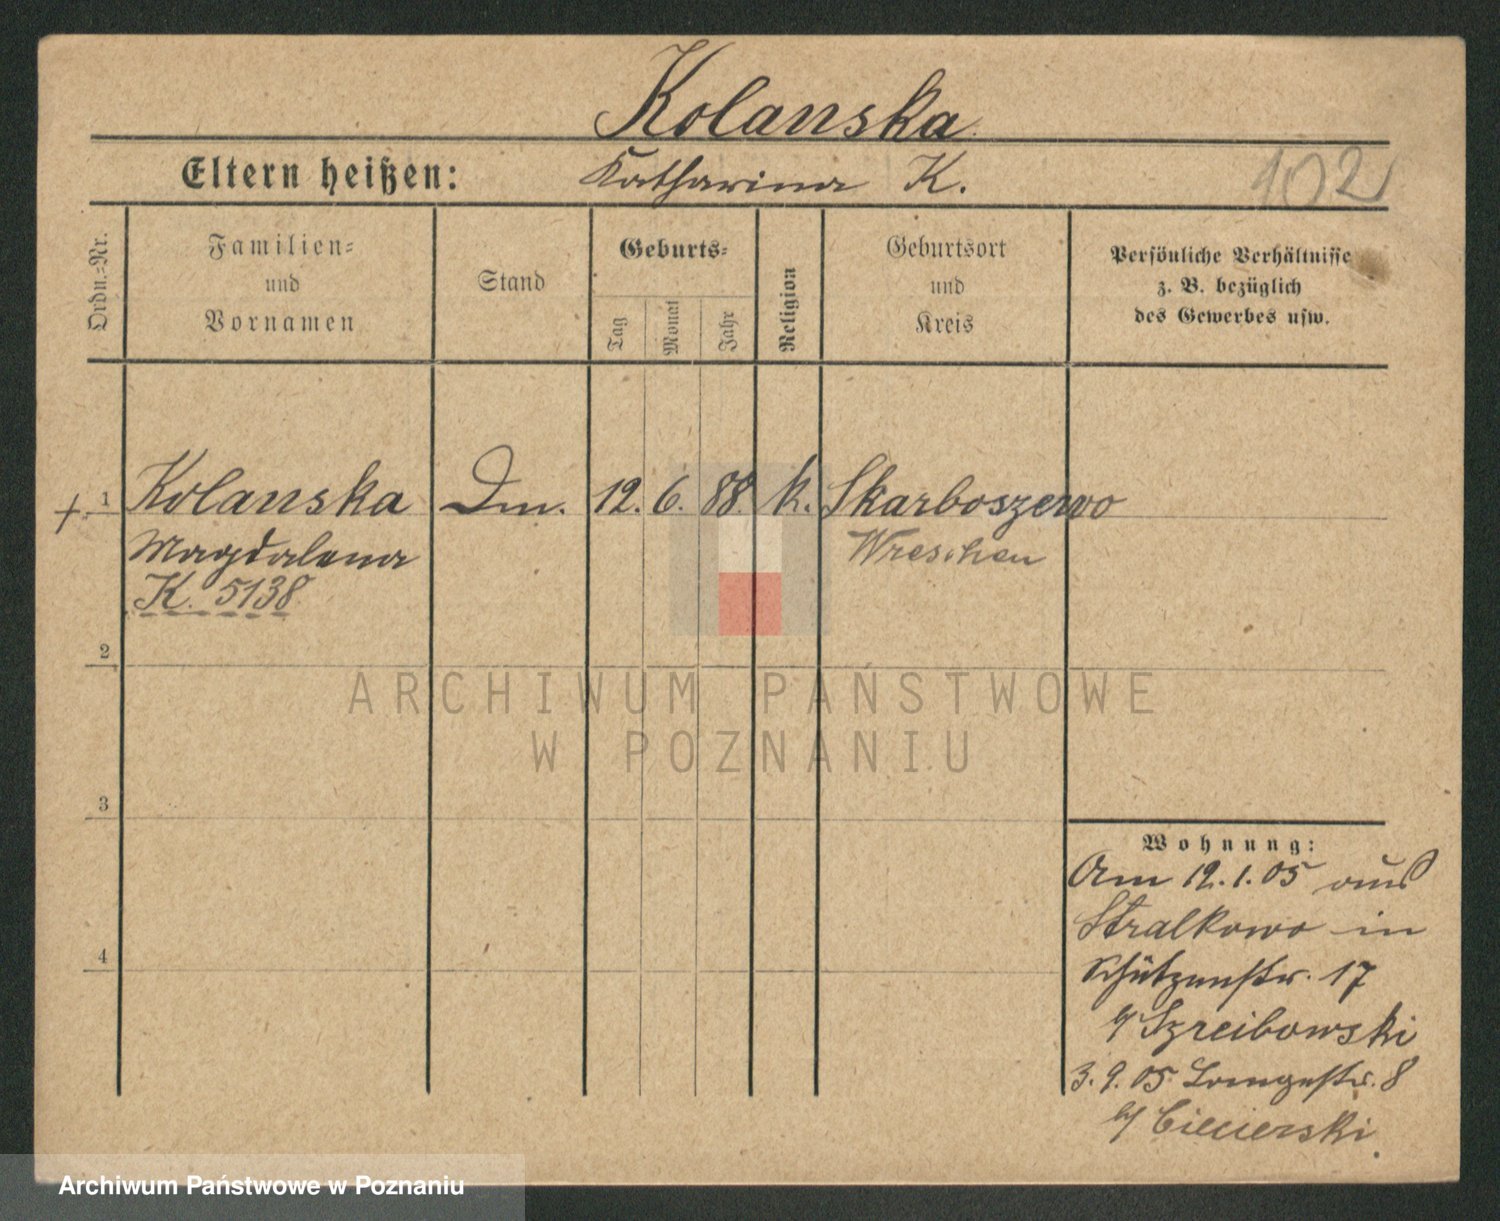 Kolanska
Eltern heißen: Katharina K.
102
Ordn.-Nr.
Familien-
und
Vornamen
Stand
Geburts-
Tag
Monat
Jahr
Religion
Geburtsort
und
Kreis
Persönliche Verhältnisse
z. B. bezüglich
des Gewerbes usw.
+ 1 Kolanska Dm. 12. 6. 88. k. Skarboszewo
Magdalena Wreschen
K. 5138
2
ARCHIWUM PAŃSTWOWE
W POZNANIU
3
4
Wohnung:
Am 12.1.05 aus
Stralkowo in
Schützenstr. 17
b/ Szreibowski
3.9.05 Langestr. 8
b/ Ciecierski
Archiwum Państwowe w Poznaniu